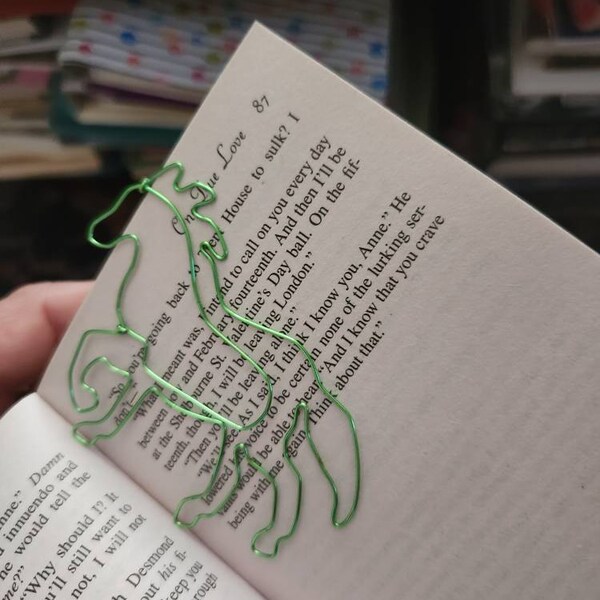 One True Love 87
"So you're going back to Kent House to sulk? I
don't—"
"What I meant was, I intend to call on you every day
between now and February fourteenth. And then I'll be
at the Shelburne St. Valentine's Day ball. On the fif-
teenth, though, I will be leaving London."
"Then you'll be leaving alone."
"We'll see. As I said, I think I know you, Anne." He
lowered his voice to be certain none of the lurking ser-
vants would be able to hear. "And I know that you crave
being with me again. Think about that."
nne." Damn
innuendo and
he would tell the
me?"
"Why should I? It
u'll still want to
not, I will not
h Desmond
out his fi-
keep you
rough